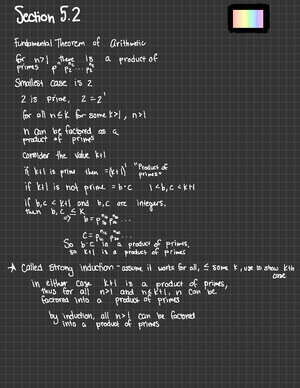 Section 5.2
Fundamental Theorem of Arithmetic
for n>1 there is a product of
primes p₁ⁿ¹ p₂ⁿ² ...
Smallest case is 2
2 is prime, 2 = 2¹
for all n ≤ k for some k>1, n>1
n can be factored as a
product of primes
Consider the value k+1
if k+1 is prime then =(k+1)¹ "Product of
primes"
if k+1 is not prime = b·c 1<b,c<k+1
if b,c < k+1 and b,c are integers,
then b,c ≤ k
⇒ b =
c =
So b·c is a product of primes,
so k+1 is a product of primes
Called strong induction - assume it works for all, ≤ some k, use to show k+1th
case
in either case k+1 is a product of primes,
thus for all n>1 and n≤k+1, n can be
factored into a product of primes
by induction, all n>1 can be factored
into a product of primes